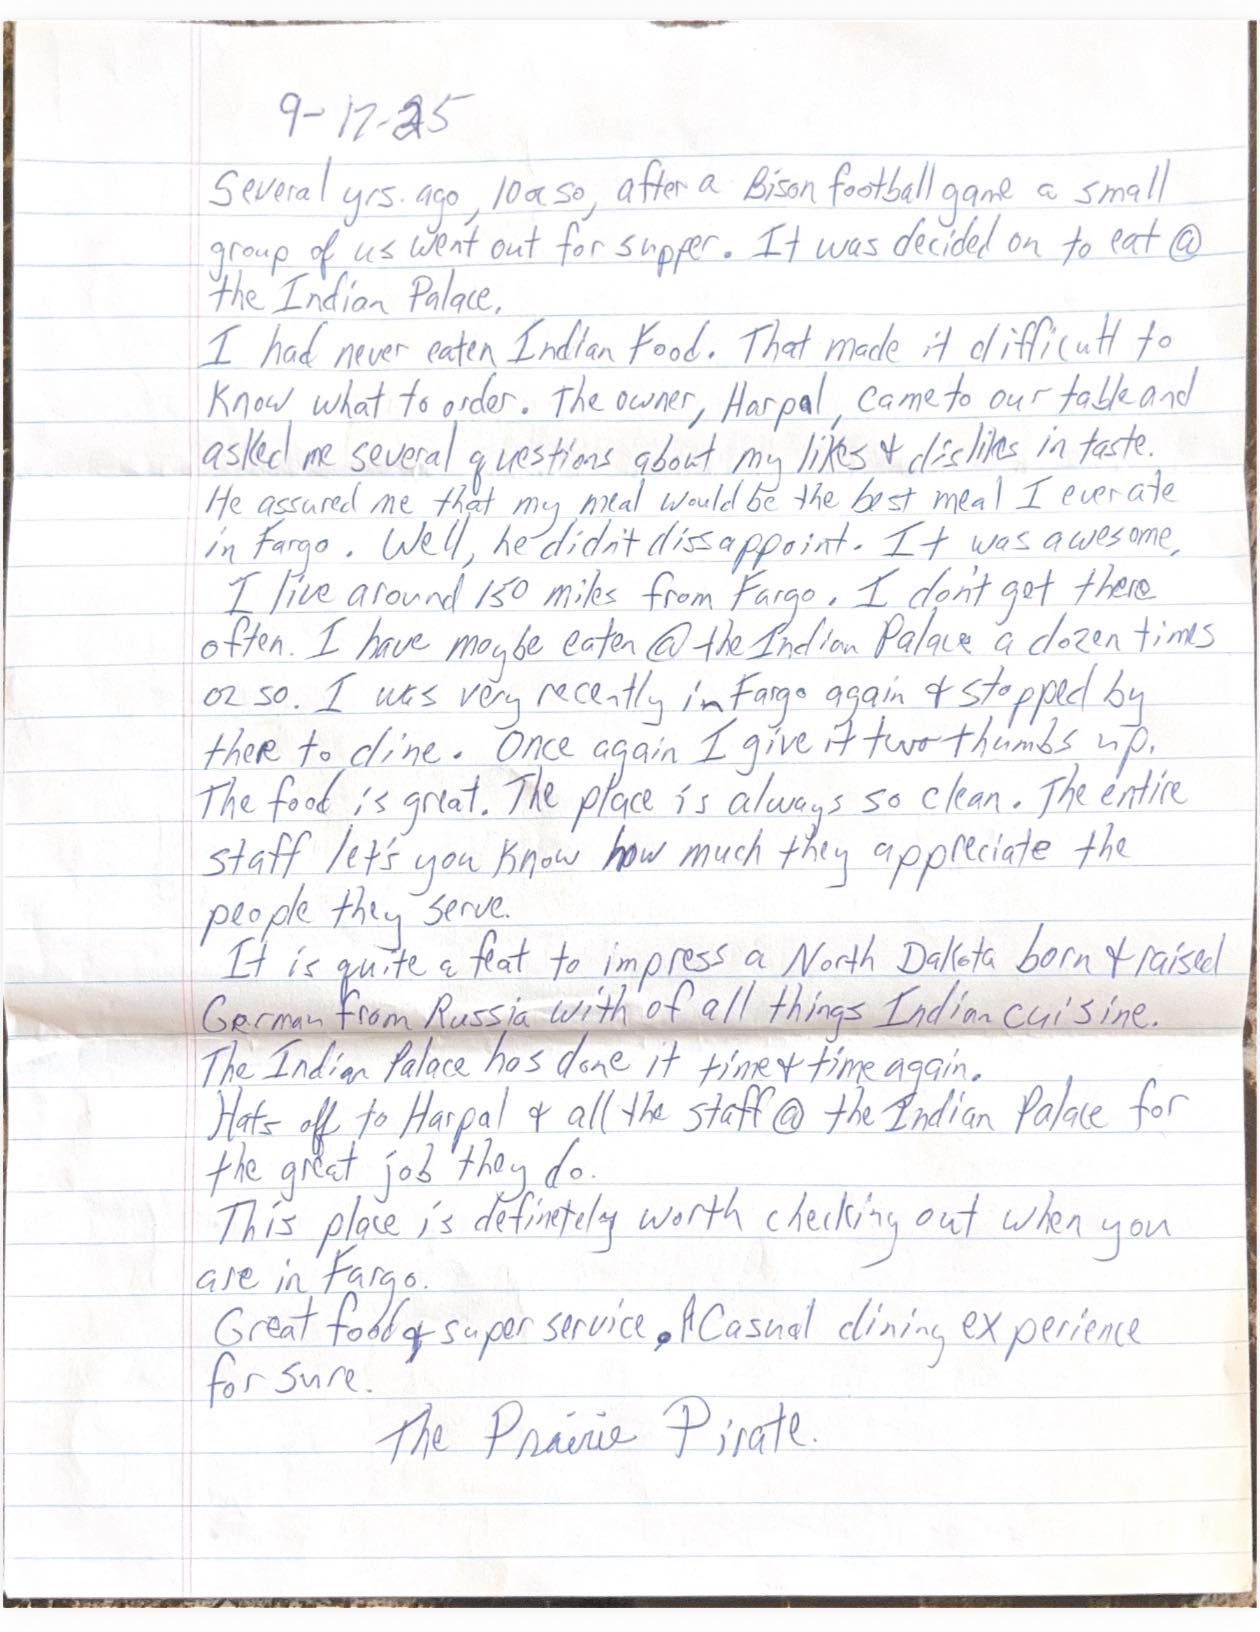 9-17-25
Several yrs. ago, 10 or so, after a Bison football game a small
group of us went out for supper. It was decided on to eat @
the Indian Palace.
I had never eaten Indian Food. That made it difficult to
Know what to order. The owner, Harpal, came to our table and
asked me several questions about my likes & dislikes in taste.
He assured me that my meal would be the best meal I ever ate
in Fargo. Well, he didn't dissappoint. It was awesome.
I live around 150 miles from Fargo. I don't get there
often. I have maybe eaten @ the Indian Palace a dozen times
or so. I was very recently in Fargo again & stopped by
there to dine. Once again I give it two thumbs up.
The food is great. The place is always so clean. The entire
staff let's you Know how much they appreciate the
people they serve.
It is quite a feat to impress a North Dakota born & raised
German from Russia with of all things Indian cuisine.
The Indian Palace has done it time & time again.
Hats off to Harpal & all the staff @ the Indian Palace for
the great job they do.
This place is definetely worth checking out when you
are in Fargo.
Great food & super service. A Casual dining experience
for sure.
The Prairie Pirate.